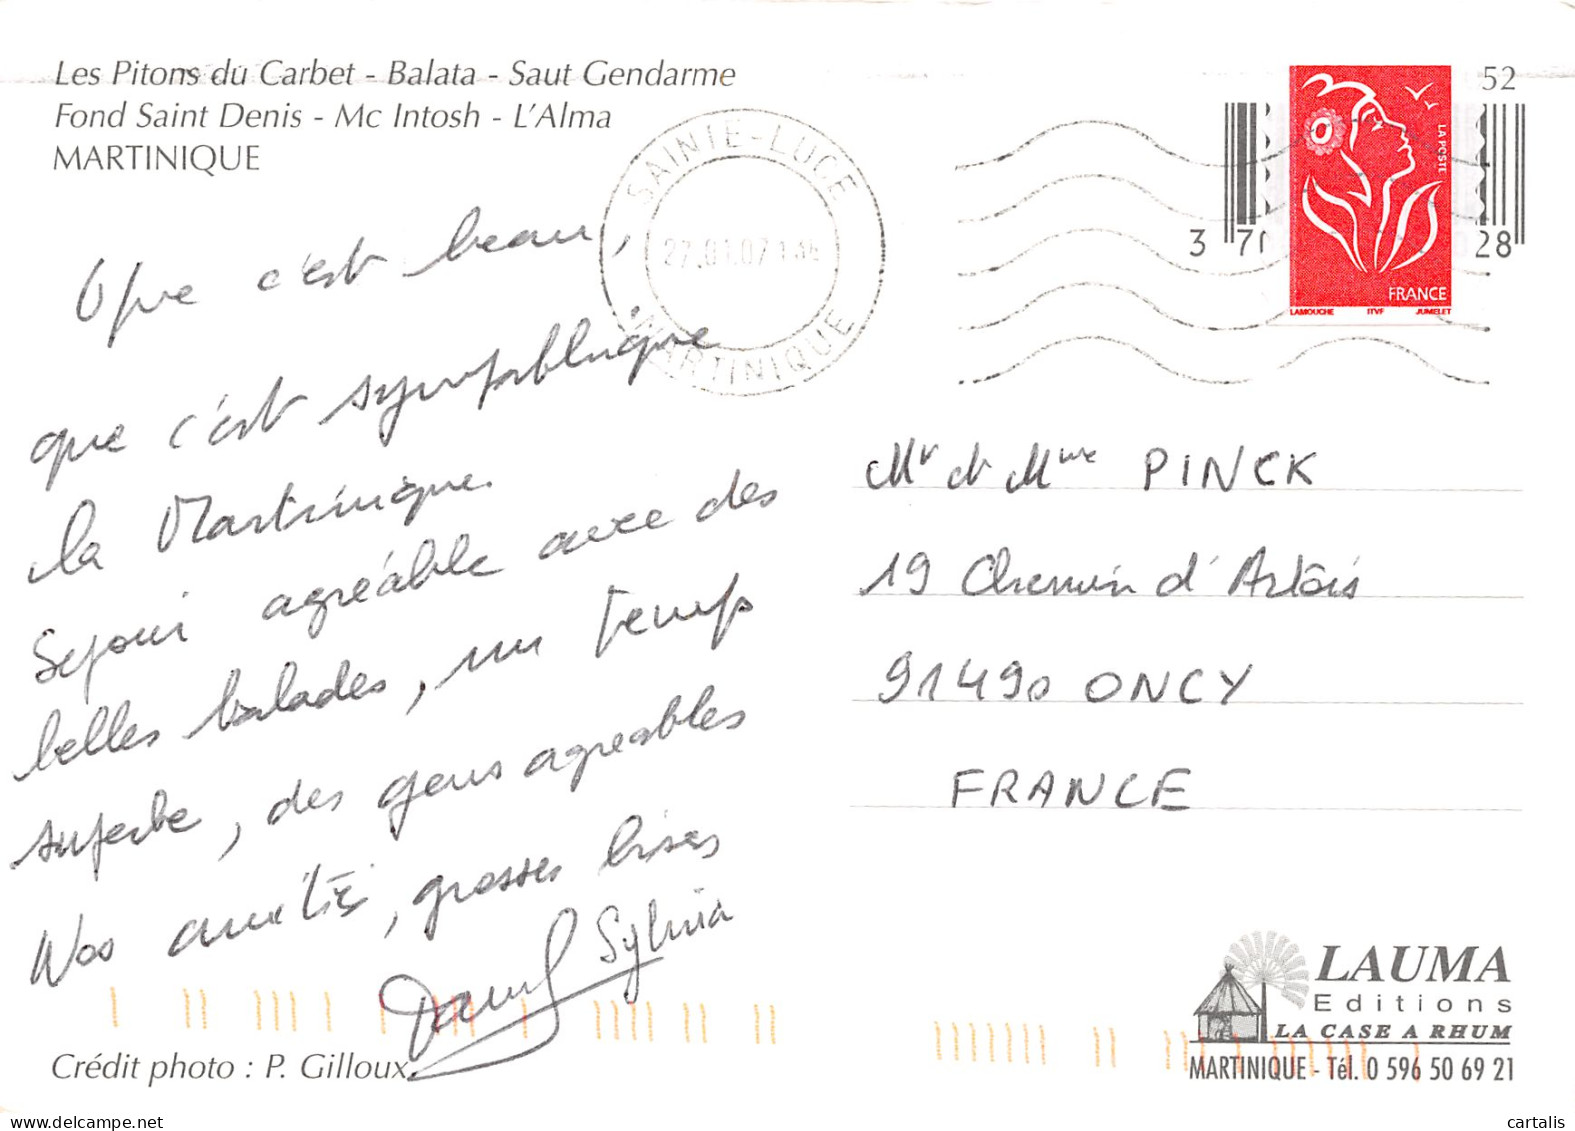 Les Pitons du Carbet - Balata - Saut Gendarme
Fond Saint Denis - Mc Intosh - L'Alma
MARTINIQUE
Que c'est beau,
que c'est sympathique
la Martinique.
Séjour agréable avec des
belles balades, un temps
superbe, des gens agréables
Nos amitiés, grosses bises
Daniel Sylvia
Crédit photo : P. Gilloux
SAINTE-LUCE
27.01.07
MARTINIQUE
52
3 7
28
LA POSTE
FRANCE
LAMOUCHE ITVF JUMELET
Mr et Mme PINCK
19 Chemin d'Artois
91490 ONCY
FRANCE
LAUMA
Editions
LA CASE A RHUM
MARTINIQUE - Tél. 0 596 50 69 21
cartalis